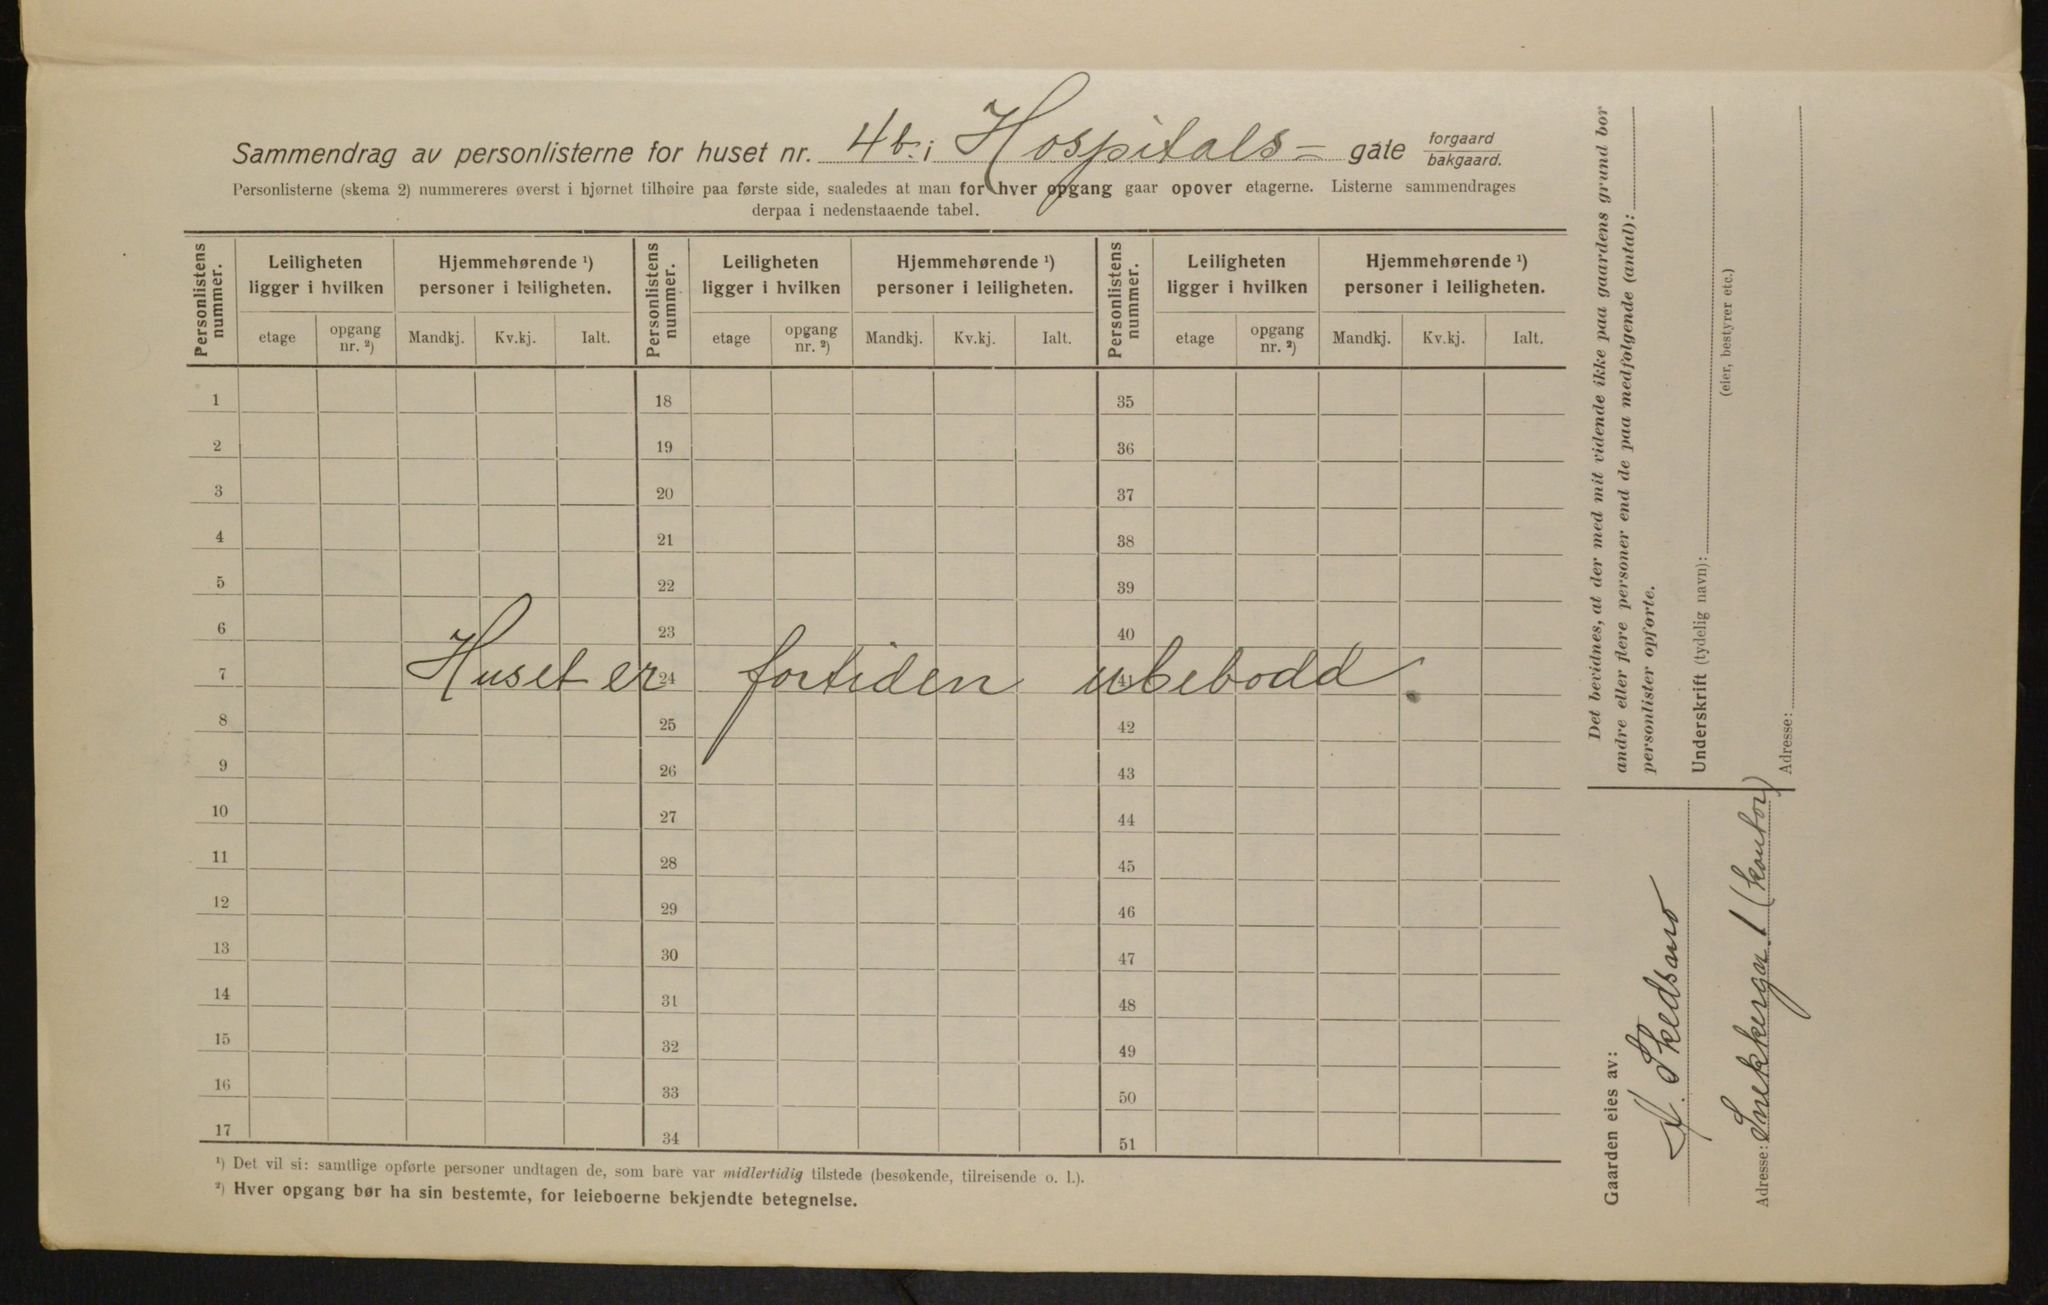 Sammendrag av personlisterne for huset nr. 4b. i Hospitals- gate forgaard bakgaard.
Personlisterne (skema 2) nummereres øverst i hjørnet tilhøire paa første side, saaledes at man for hver opgang gaar opover etagerne. Listerne sammendrages
derpaa i nedenstaaende tabel.
Personlistens nummer. Leiligheten ligger i hvilken Hjemmehørende ¹) personer i leiligheten. Personlistens nummer. Leiligheten ligger i hvilken Hjemmehørende ¹) personer i leiligheten. Personlistens nummer. Leiligheten ligger i hvilken Hjemmehørende ¹) personer i leiligheten.
etage opgang nr. ²) Mandkj. Kv.kj. Ialt. etage opgang nr. ²) Mandkj. Kv.kj. Ialt. etage opgang nr. ²) Mandkj. Kv.kj. Ialt.
1 18 35
2 19 36
3 20 37
4 21 38
5 22 39
6 23 40
7 24 41
Huset er fortiden ubebodd.
8 25 42
9 26 43
10 27 44
11 28 45
12 29 46
13 30 47
14 31 48
15 32 49
16 33 50
17 34 51
¹) Det vil si: samtlige opførte personer undtagen de, som bare var midlertidig tilstede (besøkende, tilreisende o. l.).
²) Hver opgang bør ha sin bestemte, for leieboerne bekjendte betegnelse.
Det bevidnes, at der med mit vidende ikke paa gaardens grund bor
andre eller flere personer end de paa medfølgende (antal):
personlister opførte.
Underskrift (tydelig navn):
(eier, bestyrer etc.)
Adresse:
Gaarden eies av:
Skedsmo
Adresse: Snekkergt. 1 (kontor)